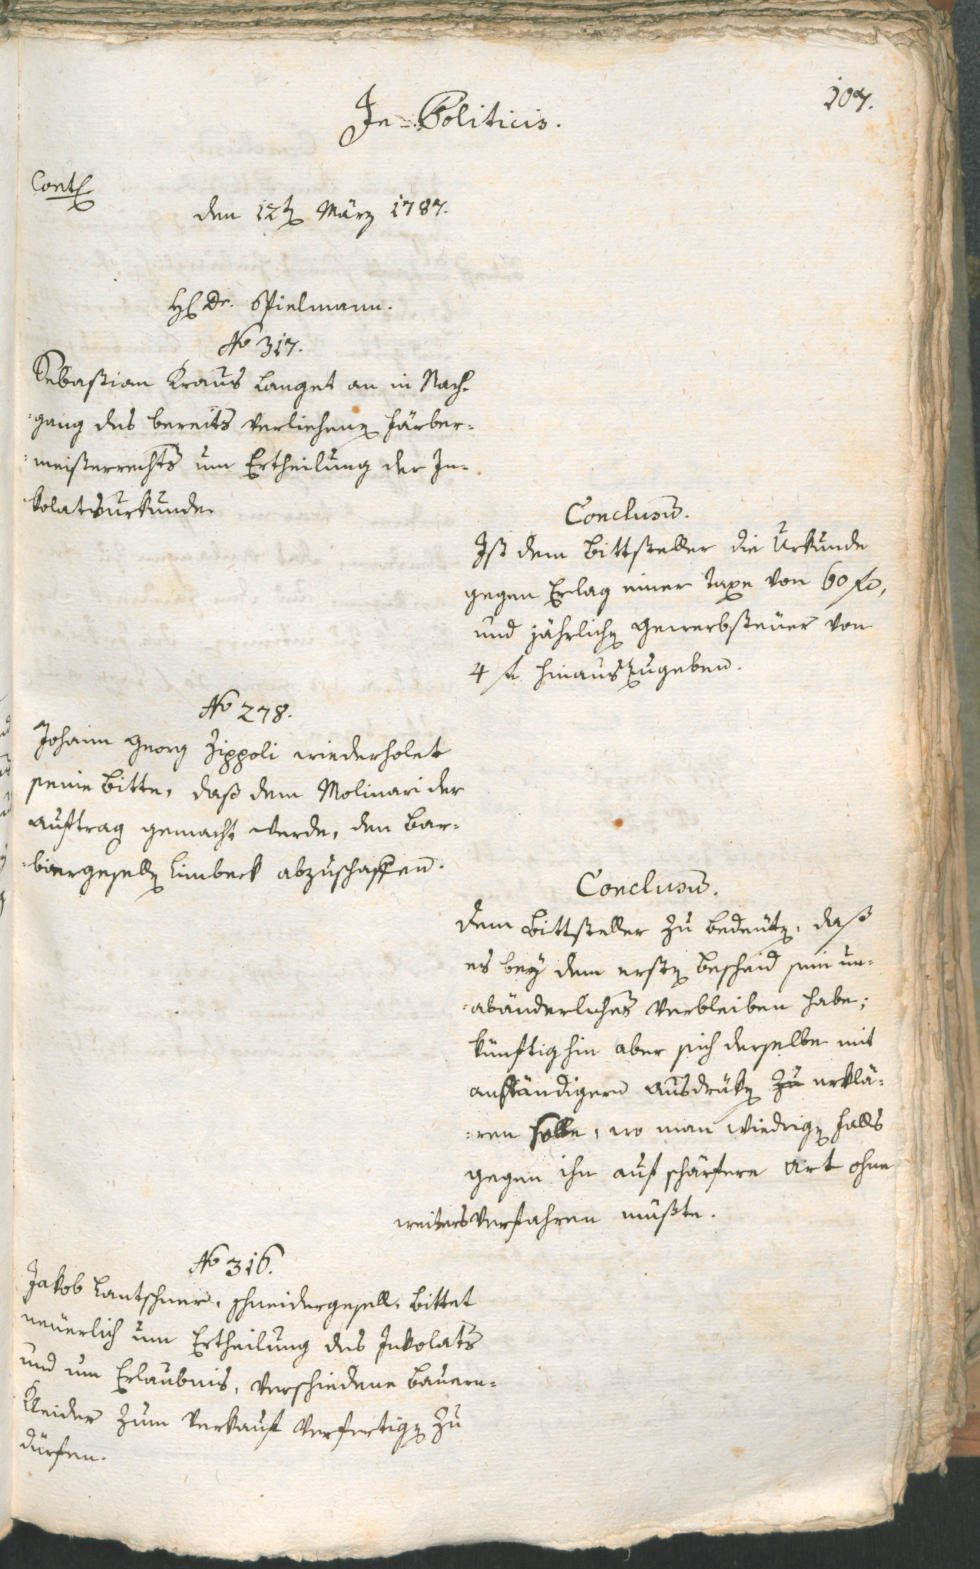 107.
In Politicis.
den 12t März 1787.
H. Dr. Spielmann.
No 317.
Sebastian Kraus langet an in Nach-
gang des bereits verliehenen Färber-
meisterrechts um Ertheilung der In-
kolatsurkunde.
Conclusum.
Ist dem Bittsteller die Urkunde
gegen Erlag einer Taxe von 60 fl,
und jährlichen Gewerbsteuer von
4 fl hinauszugeben.
No 278.
Johann Georg Zippoli wiederholet
seine Bitte, daß dem Molinari der
Auftrag gemacht werde, den Bar-
biergesellen Limbeck abzuschaffen.
Conclusum.
Dem Bittsteller zu bedeuten, daß
es bey dem ersten Bescheid sein un-
abänderliches Verbleiben habe;
künftighin aber sich derselbe mit
anständigern Ausdrüken zu erklä-
ren solle, wo man wiedrigen Falls
gegen ihn auf schärfere Art ohne
weiters verfahren müßte.
No 316.
Jakob Lantschner, Schneidergesell, bittet
neuerlich um Ertheilung des Inkolats
und um Erlaubnis, verschiedene Bauern-
Kleider zum Verkauf verfertigen zu
dürfen.